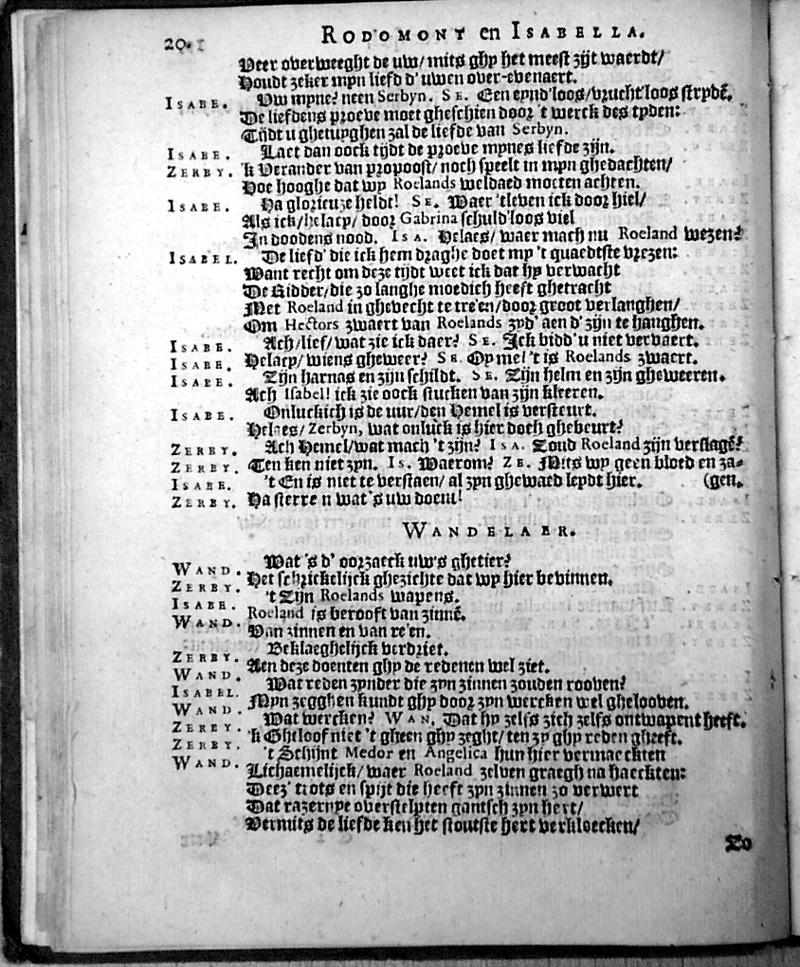 20. RODOMONT en ISABELLA.
Veer overweeght de uw/ mits ghy het meest zijt waerdt/
Houdt zeker myn liefd d'uwen over-evenaert.
ISABE. Vw myne? neen Serbyn. SE. Een eynd'loos/vrucht'loos strydē.
De liefdens proeve moet gheschien door 't werck des tyden:
Tijdt u ghetuyghen zal de liefde van Serbyn.
ISABE. Laet dan oock tijdt de proeve mynes liefde zijn.
ZERBY. 'k Verander van propoost/ noch speelt in myn ghedachten/
Hoe hooghe dat wy Roelands weldaed moeten achten.
ISABE. Ha glorieuze heldt! SE. Waer 'tleven ick door hiel/
Als ick/helaey/ door Gabrina schuld'loos viel
In doodens nood. ISA. Helaes/ waer mach nu Roeland wezen?
ISABEL. De liefd' die ick hem draghe doet my 't quaedtste vrezen:
Want recht om deze tijdt weet ick dat hy verwacht
De Ridder/die zo langhe moedich heeft ghetracht
Met Roeland in ghevecht te tre'en/door groot verlanghen/
Om Hectors zwaert van Roelands zyd' aen d'zijn te hanghen.
ISABE. Ach/lief/wat zie ick daer? SE. Ick bidd'u niet vervaert.
ISABE. Helaey/ wiens gheweer? SE. Op mel 't is Roelands zwaert.
ISABE. Zijn harnas en zijn schildt. SE. Zijn helm en zijn gheweeren.
Ach Isabel! ick zie oock stucken van zijn kleeren.
ISABE. Onluckich is de uur/den Hemel is versteurt.
Helaes/ Zerbyn, wat onluck is hier doch ghebeurt?
ZERBY. Ach Hemel/wat mach 't zijn? ISA. Zoud Roeland zijn verslagē?
ZERBY. Ten ken niet zyn. IS. Waerom? ZE. Mits wy geen bloed en za-
ISABE. 't En is niet te verstaen/ al zyn ghewaed leydt hier. (gen.
ZERBY. Ha sterre n wat's uw doem!
WANDELAER.
WAND. Wat 's d' oorzaeck uw's ghetier?
ZERBY. Het schrickelijck ghezichte dat wy hier bevinnen.
ISABE. 't Zijn Roelands wapens.
WAND. Roeland is berooft van zinnē.
Van zinnen en van re'en.
ZERBY. Beklaeghelijck verdriet.
WAND. Aen deze doenten ghy de redenen wel ziet.
ISABEL. Wat reden zynder die zyn zinnen zouden rooven?
WAND. Myn zegghen kundt ghy door zyn wercken wel ghelooven.
ZERBY. Wat wercken? WAN. Dat hy zelfs zich zelfs ontwapent heeft.
ZERBY. 'k Gheloof niet 't gheen ghy zeght/ ten zy ghy reden gheeft.
WAND. 't Schijnt Medor en Angelica hun hier vermaeckten
Lichaemelijck/waer Roeland zelven graegh na haeckten:
Deez' trots en spijt die heeft zyn zinnen zo verwert
Dat razernye overstelpten gantsch zyn hert/
Vermits de liefde ken het stoutste hert verkloecken/
Zo